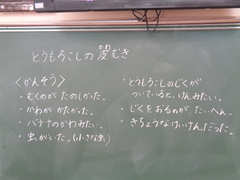 とうもろこしの皮むき
かわ
〈かんそう〉
・むくのが たのしかった。
・かわが かたかった。
・バナナのかわみたい。
・虫がいた。(小さな虫)
・とうもろこしのじくが
ついていると、けんみたい。
・じくをおるのが、たいへん。
・きちょうなけいけんだった。